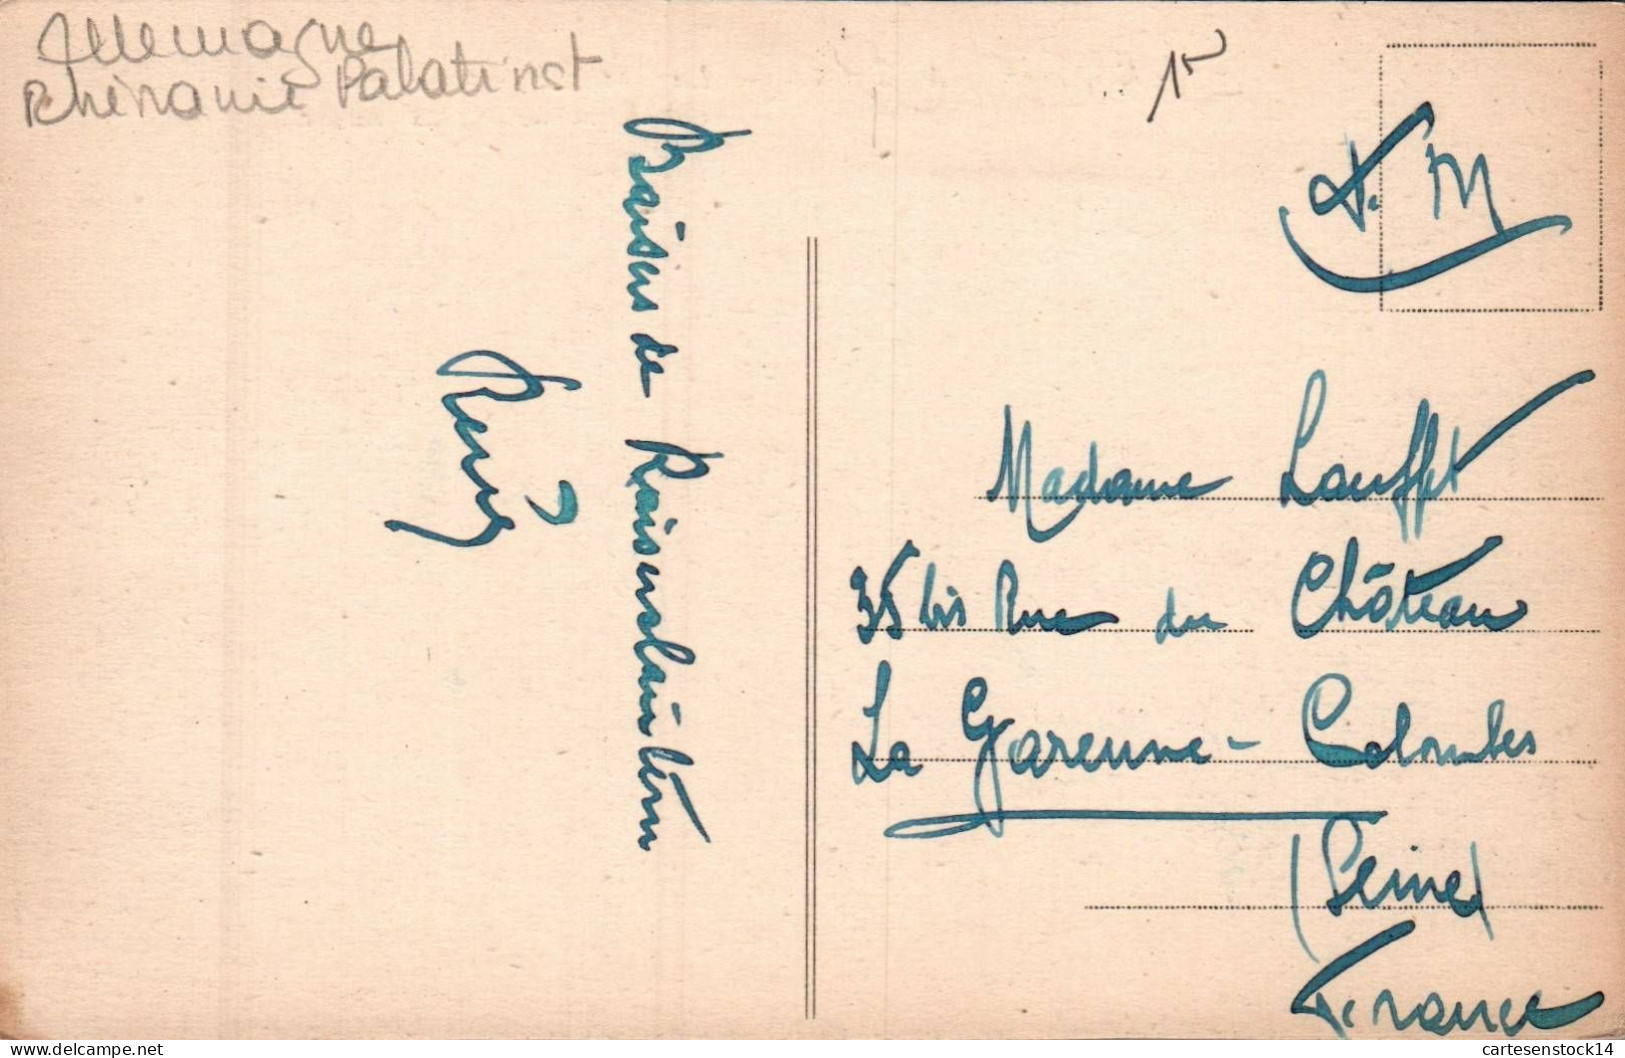 Allemagne
Rhénanie Palatinat
Baisers de Kaiserslautern
F. M
Madame
35 bis Rue du Château
La Garenne - Colombes
(Seine)
France
cartesenstock14